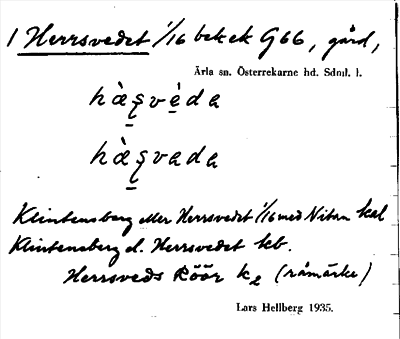 1 Herrsvedet 1/16 bek ek G66, gård,
Ärla sn. Österrekarne hd. Sdml. l.
hà̠ʂvè̠da
hà̠ʂvada
Klintensberg eller Herrsvedet 1/16 med Nitan kal
Klintensberg d. Herrsvedet kb.
Herrsveds Röör k2 (råmärke)
Lars Hellberg 1935.